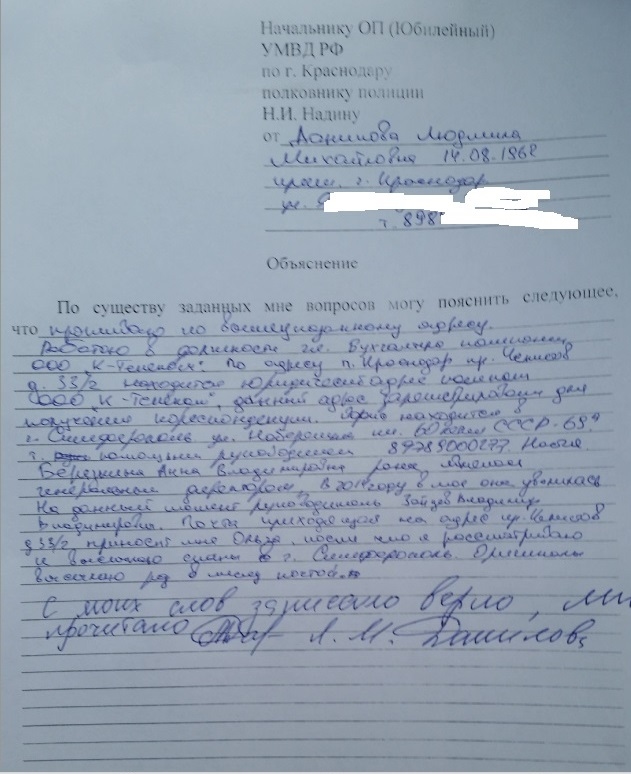 Начальнику ОП (Юбилейный)
УМВД РФ
по г. Краснодару
полковнику полиции
Н.И. Надину
от Данилова Людмила
Михайловна 14.08.1968
прож. г. Краснодар
ул.
т. 898
Объяснение
По существу заданных мне вопросов могу пояснить следующее,
что проживаю по вышеуказанному адресу.
Работаю в должности гл. Бухгалтера компании
ООО "К-Телеком" По адресу г. Краснодар пр. Чекистов
д. 33/2 находится юридический адрес компании
ООО "К-Телеком", данный адрес зарегистрирован для
получения кореспонденции. Офис находится в
г. Симферополь ул. Набережная им. 60 летия СССР-69
т. помощник руководителя 89789000277 Настя.
Бережкина Анна Владимировна ранее
генеральным директором, В 2019 году в мае она уволилась
На данный момент руководитель Зайцев Владимир
Владимирович. Почта приходящая на адрес пр. Чекистов
д 33/2 приносит мне Ольга, после чего я рассматриваю
и высылаю сканы в г. Симферополь. Оригиналы
высылаю раз в месяц
С моих слов записано верно, м
прочитано Л. М. Данилова